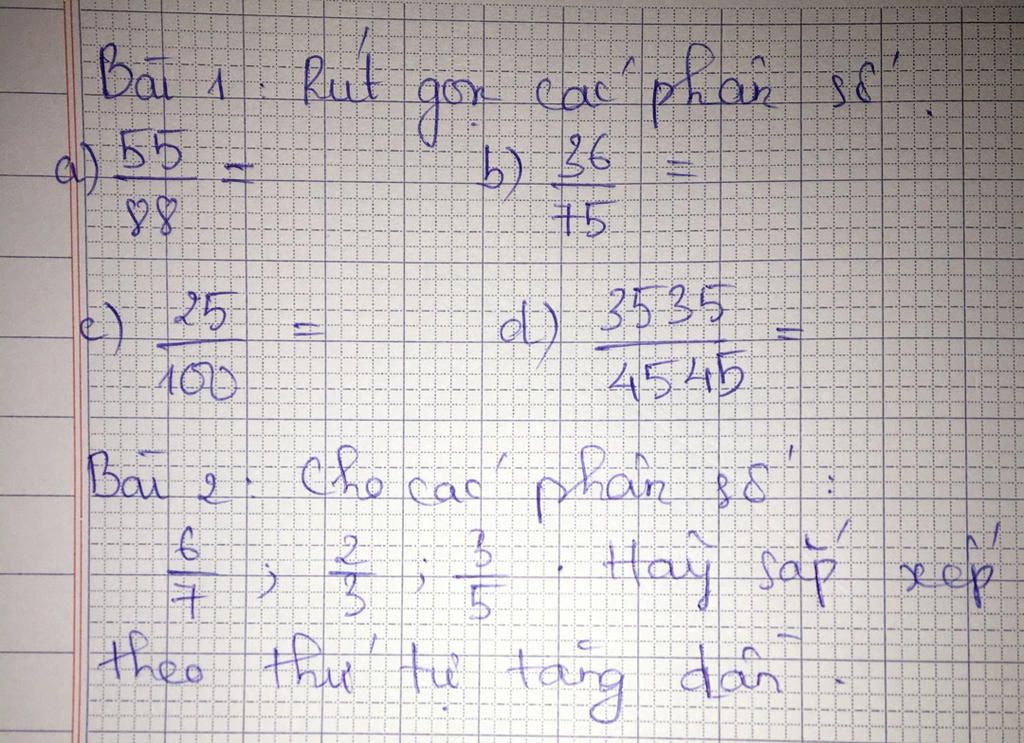 Bài 1: Rút gọn các phân số.
a) 55/88 = b) 36/75 =
c) 25/100 = d) 3535/4545 =
Bài 2: Cho các phân số:
6/7 ; 2/3 ; 3/5 . Hãy sắp xếp
theo thứ tự tăng dần.